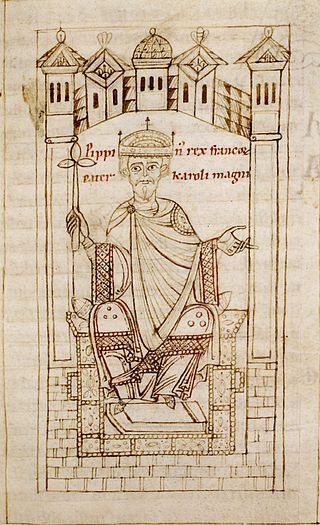 pippin⁹ rex francoꝝ
pater karoli magni